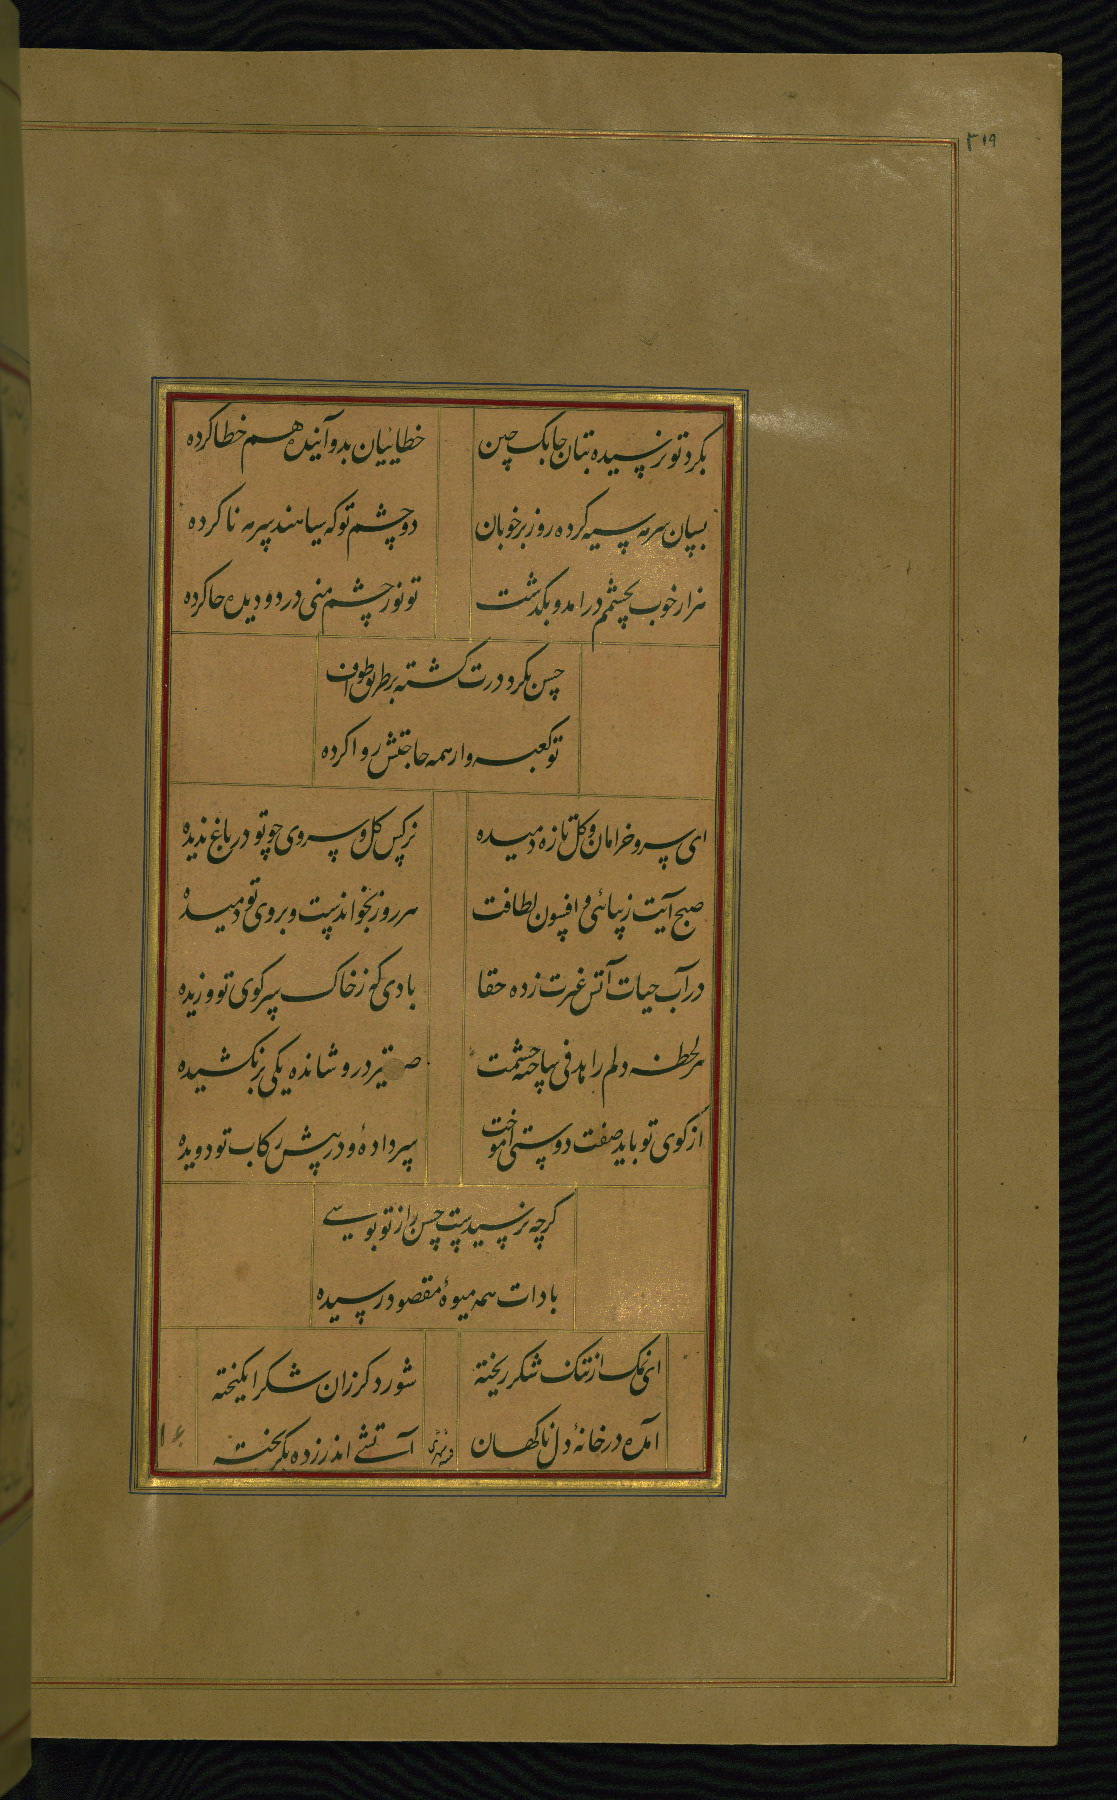 ۳۱۹
بکرد تو نرسیده بتان جابک چین
خطاییان بدو آیینده هم خطا کرده
بسان سرمه سیه کرده روز بر خوبان
دو چشم تو که سیاهند سرمه نا کرده
هزار خوب بچشمم درامد و بکذشت
تو نور چشم منی در دو دیده جا کرده
حسن بکرد درت کشته بر طریق طواف
تو کعبه وار همه حاجتش روا کرده
ای سرو خرامان و کل تازه دمیده
نرکس کل و سروی چو تو در باغ ندیده
صبح آیت زیبائی و افسون لطافت
هر روز بخواندست و بروی تو دمیده
در آب حیات آتش غیرت زده حقا
بادی که ز خاک سر کوی تو وزیده
هر لحظه دلم را هدفی ساخته چشمت
تیر درو شانده یکی بر نکشیده
از کوی تو باید صفت دوستی آموخت
سر داده و در پیش رکاب تو دویده
کرچه نرسیدست حسن را ز تو بوسی
بادات همه میوهٔ مقصود رسیده
ای نمک از تنک شکر ریخته
شور دکر زان شکر انکیخته
آمده در خانهٔ دل ناکهان
آتشی اندر زده بکریخته